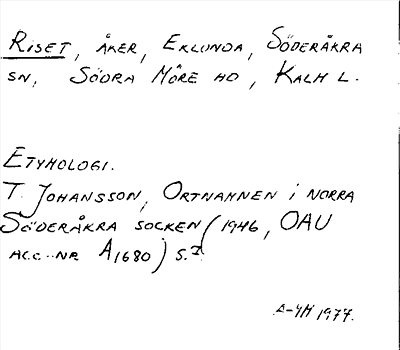 RISET, ÅKER, EKLUNDA, SÖDERÅKRA
SN, SÖDRA MÖRE HD, KALM L.
ETYMOLOGI.
T. JOHANSSON, ORTNAMNEN I NORRA
SÖDERÅKRA SOCKEN (1946, OAU
ACC. NR A1680) S. 7.
A-YM 1977.